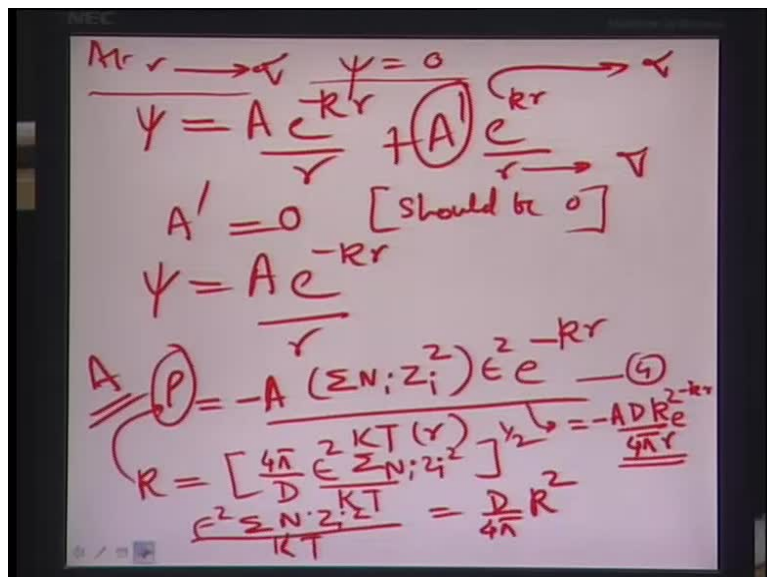 NEC
At r → ∝ ψ = 0
ψ = A e^{-kr}/r + A' e^{kr}/r → ∝
r → ∝
A' = 0 [should be 0]
ψ = A e^{-kr}/r
A P = -A (ΣN_i Z_i^2) ε^2 e^{-kr} / KT (r) — (4)
= -A D k^2 e^{-kr} / 4π r
k = [4π/D ε^2 ΣN_i z_i^2 / KT]^{1/2}
ε^2 ΣN_i z_i^2 / KT = D/4π k^2